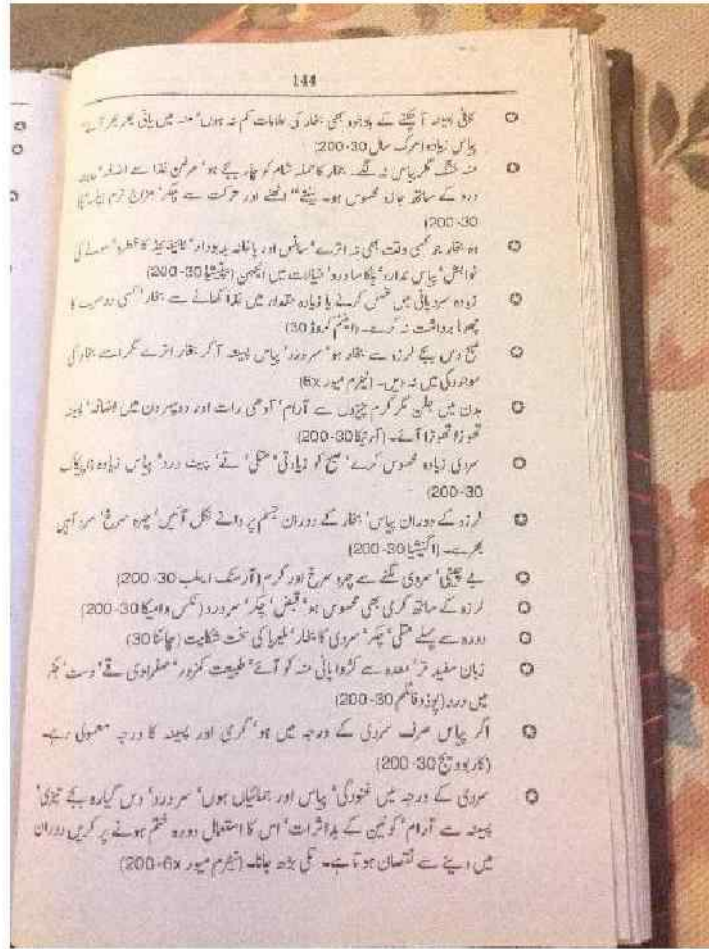 144
کافی پسینہ آ چکنے کے باوجود بھی بخار کی علامات کم نہ ہوں' منہ میں پانی بھر بھر آئے
پیاس زیادہ (مرک سال 30-200)
منہ خشک مگر پیاس نہ لگے۔ بخار کا حملہ شام کو چار بجے ہو' مرغن غذا سے اضافہ'
درد کے ساتھ جاڑہ محسوس ہو۔ بیٹھے' اٹھنے اور حرکت سے چکر' مزاج نرم
30-200)
وہ بخار جو کسی وقت بھی نہ اترے' سانس اور پاخانہ بدبودار' ٹائیفائیڈ کا خطرہ' سونے کی
خواہش' پیاس ندارد' ہلکا سا درد' خیالات میں الجھن (بپٹیشیا 30-200)
زیادہ سرد پانی میں غسل کرنے یا زیادہ مقدار میں غذا کھانے سے بخار' کسی دوسرے کا
چھونا برداشت نہ کرے۔ (انٹم کروڈ 30)
صبح دس بجے لرزہ سے بخار ہو' سر درد' پیاس پسینہ آ کر بخار اترے مگر اسے بخار کی
موجودگی میں نہ دیں۔ (نیٹرم میور 6x)
بدن میں جلن مگر گرم چیزوں سے آرام' آدھی رات اور دوپہر دن میں اضافہ' پسینہ
تھوڑا تھوڑا آئے۔ (آرنیکا 30-200)
سردی زیادہ محسوس کرے' صبح کو زیادتی' متلی' قے' پیٹ درد' پیاس زیادہ (اپیکاک
30-200)
لرزہ کے دوران پیاس' بخار کے دوران جسم پر دانے نکل آئیں' چہرہ سرخ' سرد آہیں
بھرے۔ (اگنیشیا 30-200)
بے چینی' سردی لگنے سے چہرہ سرخ اور گرم (آرسنک ایلب 30-200)
لرزہ کے ساتھ گرمی بھی محسوس ہو' قبض' چکر' سر درد (نکس وامیکا 30-200)
دورہ سے پہلے متلی' چکر' سردی کا بخار' ملیریا کی سخت شکایت (چائنا 30)
زبان سفید تر' معدہ سے کڑوا پانی منہ کو آئے' طبیعت کمزور' صفراوی قے' دست' جگر
میں درد (پوڈوفائلم 30-200)
اگر پیاس صرف سردی کے درجہ میں ہو' گرمی اور پسینہ کا درجہ معمولی رہے۔
(کاربوویج 30-200)
سردی کے درجہ میں غنودگی' پیاس اور جمائیاں ہوں' سر درد' دس گیارہ بجے تیزی'
پسینہ سے آرام' کونین کے بداثرات' اس کا استعمال دورہ ختم ہونے پر کریں دوران
میں دینے سے نقصان ہوتا ہے۔ تلی بڑھ جانا۔ (نیٹرم میور 6x-200)